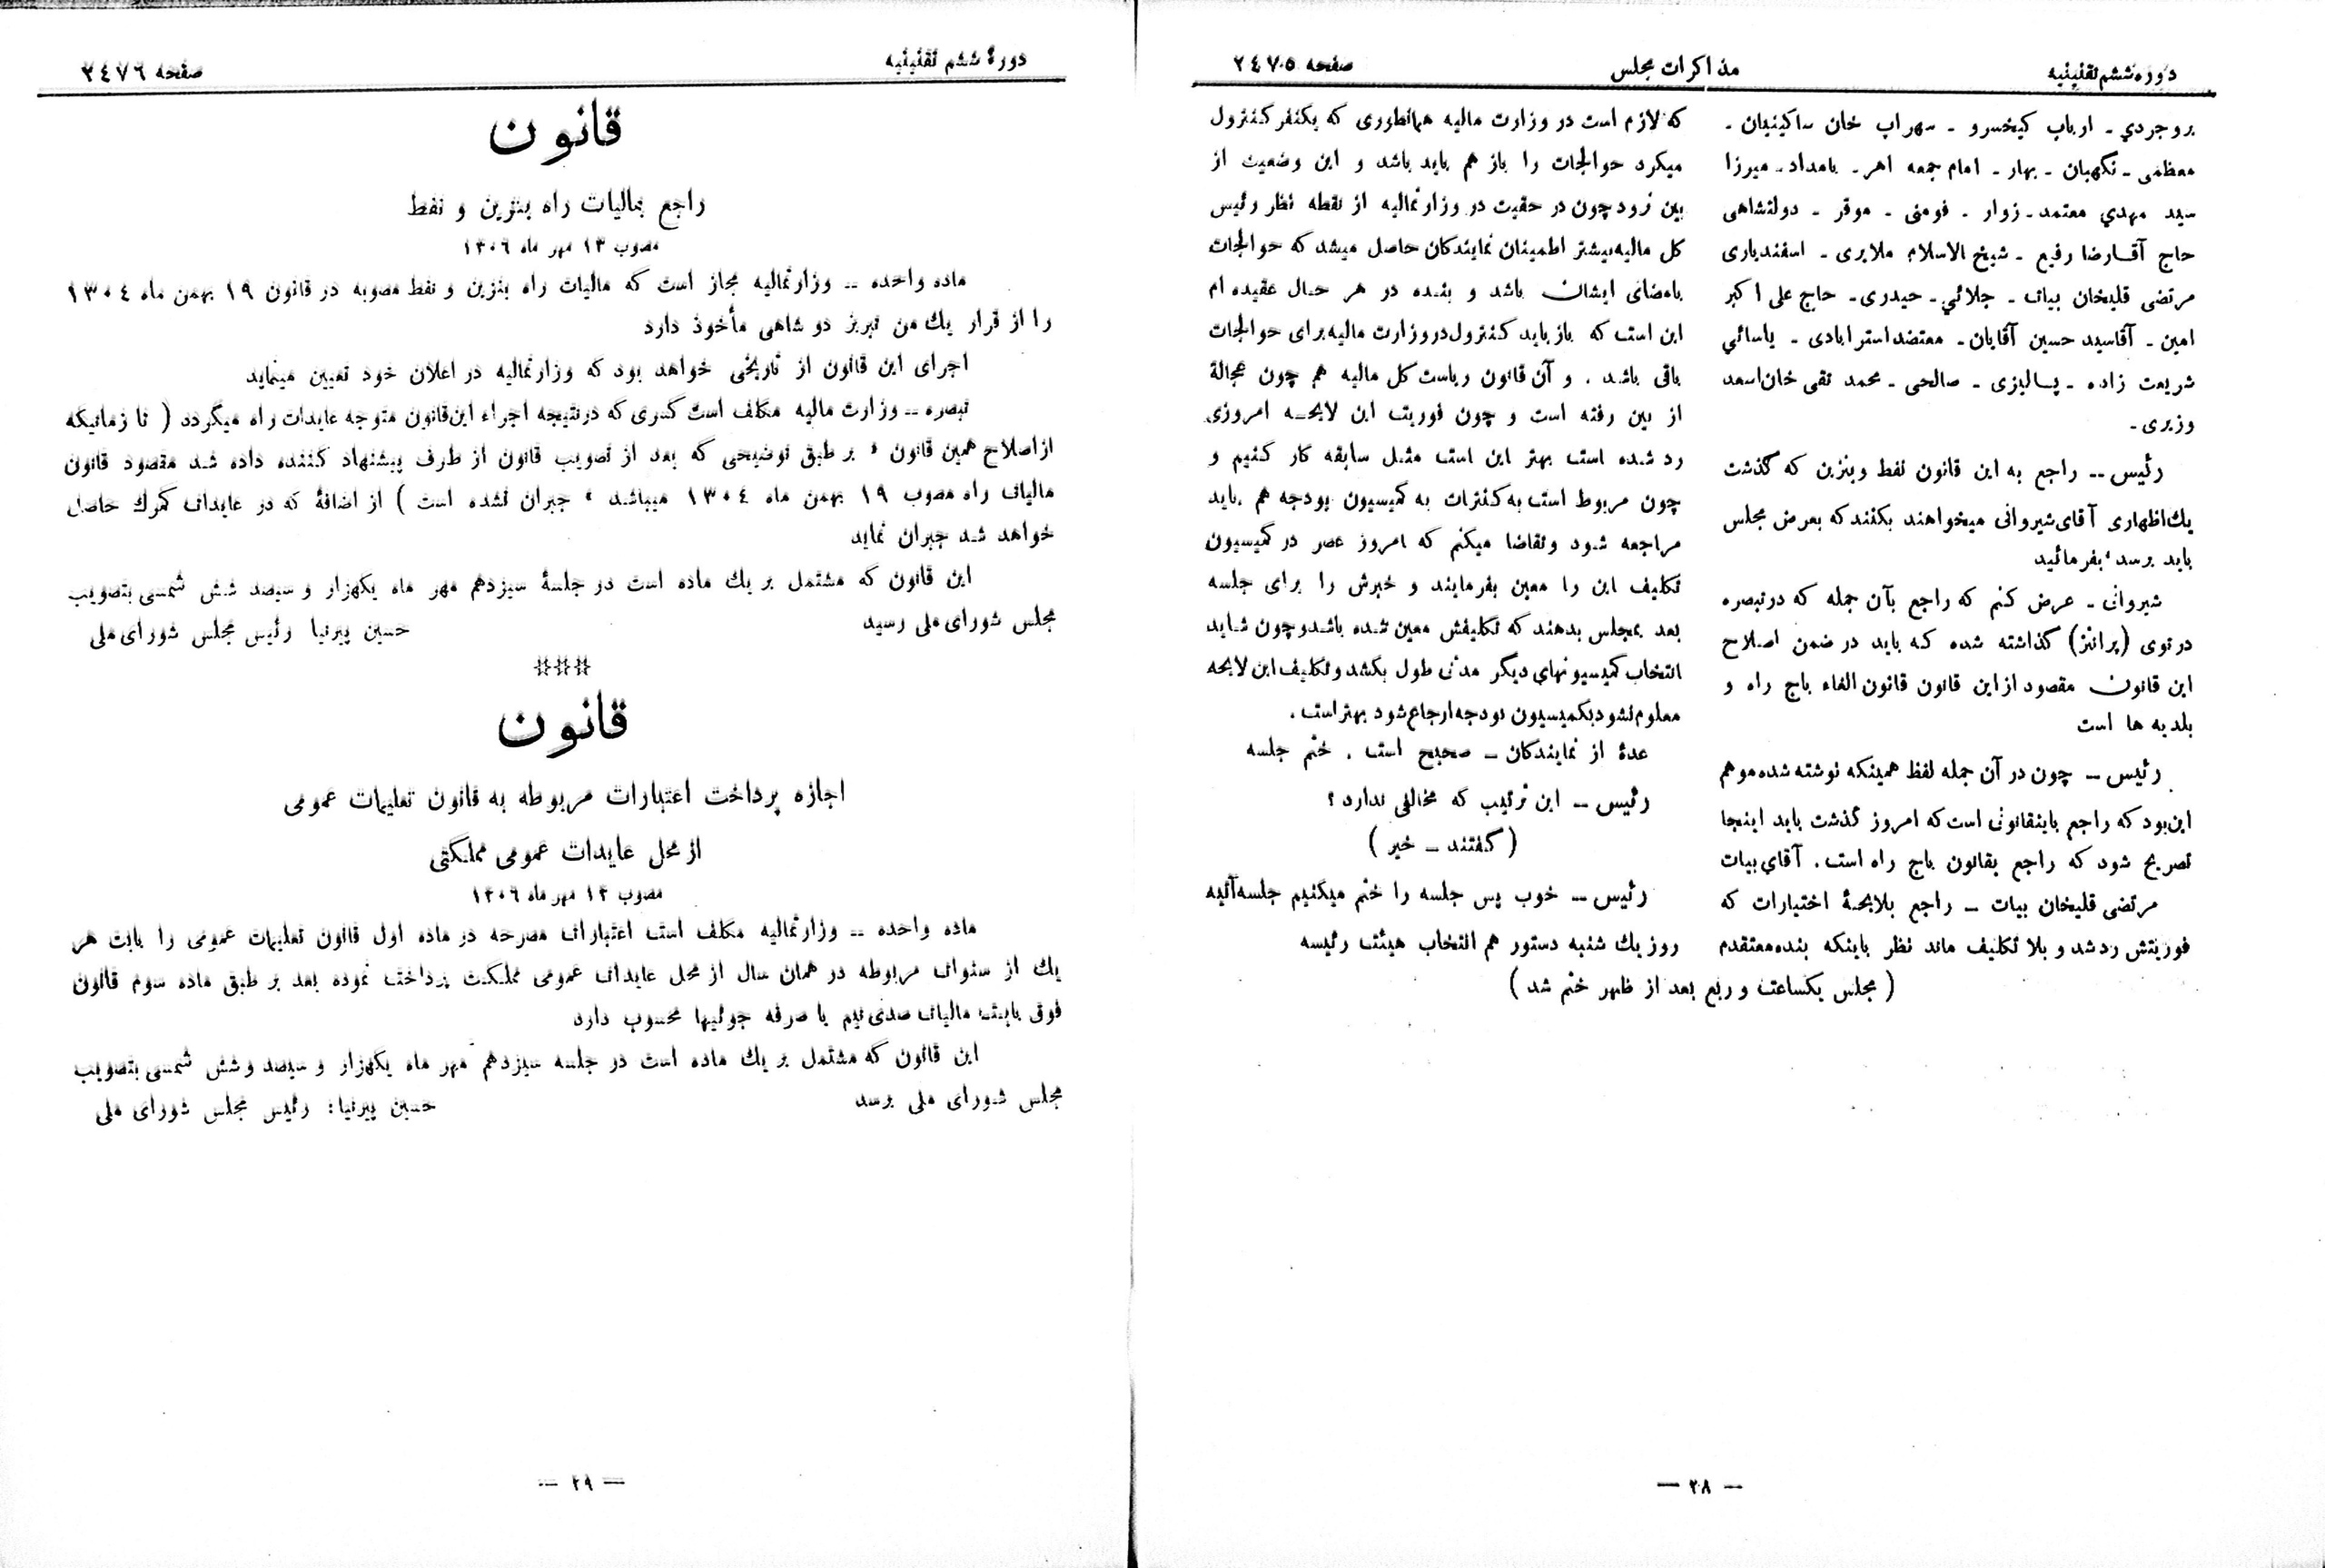 دوره ششم تقنینیه
مذاکرات مجلس
صفحه ۲٤۷۵
بروجردي ـ ارباب کیخسرو ـ سهراب خان ساکینیان ـ
معظمی ـ نگهبان ـ بهار ـ امام جمعه اهر ـ بامداد ـ میرزا
سید مهدي معتمد ـ زوار ـ فومنی ـ موقر ـ دولتشاهی
حاج آقارضا رفیع ـ شیخ الاسلام ملایری ـ اسفندیاری
مرتضی قلیخان بیات ـ جلائي ـ حیدری ـ حاج علی اکبر
امین ـ آقاسید حسین آقایان ـ معتضد استرابادی ـ یاسائي
شریعت زاده ـ پالیزی ـ صالحی ـ محمد تقی خان اسعد
وزیری ـ
رئیس ــ راجع به این قانون نفط وبنزین که گذشت
یك اظهاری آقای شیروانی میخواهند بکنند که بعرض مجلس
باید برسد، بفرمائید
شیروانی ـ عرض کنم که راجع بآن جمله که در تبصره
در توی (پرانتز) گذاشته شده که باید در ضمن اصلاح
این قانون مقصود از این قانون قانون الغاء باج راه و
بلدیه ها است
رئیس ــ چون در آن جمله لفظ همینکه نوشته شده موهم
این بود که راجع باینقانونی است که امروز گذشت باید اینجا
تصریح شود که راجع بقانون باج راه است. آقای بیات
مرتضی قلیخان بیات ــ راجع بلایحهٔ اختیارات که
فوریتش رد شد و بلا تکلیف ماند نظر باینکه بنده معتقدم
که لازم است در وزارت مالیه همانطوری که یکنفر کنترول
میکرد حوالجات را باز هم باید باشد و این وضعیت از
بین نرود چون در حقیت در وزارتمالیه از نقطه نظر رئیس
کل مالیه بیشتر اطمینان نمایندکان حاصل میشد که حوالجات
بامضای ایشان باشد و بنده در هر حال عقیده ام
این است که باز باید کنترول در وزارت مالیه برای حوالجات
باقی باشد . و آن قانون ریاست کل مالیه هم چون عجالة
از بین رفته است و چون فوریت این لایحه امروزی
رد شده است بهتر این است مثل سابقه کار کنیم و
چون مربوط است به کنترات به کمیسیون بودجه هم باید
مراجعه شود وتقاضا میکنم که امروز عصر در کمیسیون
تکلیف این را معین بفرمایند و خبرش را برای جلسه
بعد بمجلس بدهند که تکلیفش معین شده باشد و چون شاید
انتخاب کمیسیونهاي دیگر مدتی طول بکشد و تکلیف این لایحه
معلوم نشود بکمیسیون بودجه ارجاع شود بهتر است .
عدهٔ از نمایندکان ــ صحیح است . ختم جلسه
رئیس ــ این ترتیب که مخالفی ندارد ؟
( گفتند ــ خیر )
رئیس ــ خوب پس جلسه را ختم میکنیم جلسه آتیه
روز یك شنبه دستور هم انتخاب هیئت رئیسه
( مجلس یکساعت و ربع بعد از ظهر ختم شد )
— ۲۸ —
دورهٔ ششم تقنینیه
صفحه ۲٤۷٦
قانون
راجع بمالیات راه بنزین و نفط
مصوب ۱۳ مهر ماه ۱۳۰٦
ماده واحده ــ وزارتمالیه مجاز است که مالیات راه بنزین و نفط مصوبه در قانون ۱۹ بهمن ماه ۱۳۰٤
را از قرار یك من تبریز دو شاهی مأخوذ دارد
اجرای این قانون از تاریخی خواهد بود که وزارتمالیه در اعلان خود تعیین مینماید
تبصره ــ وزارت مالیه مکلف است کسری که در نتیجه اجراء این قانون متوجه عایدات راه میگردد ( تا زمانیکه
از اصلاح همین قانون ، بر طبق توضیحی که بعد از تصویب قانون از طرف پیشنهاد کننده داده شد مقصود قانون
مالیات راه مصوب ۱۹ بهمن ماه ۱۳۰٤ میباشد ، جبران نشده است ) از اضافهٔ که در عایدات گمرك حاصل
خواهد شد جبران نماید
این قانون که مشتمل بر یك ماده است در جلسهٔ سیزدهم مهر ماه یکهزار و سیصد شش شمسی بتصویب
مجلس شورای ملی رسید
حسین پیرنیا رئیس مجلس شورای ملی
###
قانون
اجازه پرداخت اعتبارات مربوطه به قانون تعلیمات عمومی
از محل عایدات عمومی مملکتی
مصوب ۱۳ مهر ماه ۱۳۰٦
ماده واحده ــ وزارتمالیه مکلف است اعتبارات مصرحه در ماده اول قانون تعلیمات عمومی را بابت هر
یك از سنوات مربوطه در همان سال از محل عایدات عمومی مملکت پرداخت نموده بعد بر طبق ماده سوم قانون
فوق بابت مالیات صدی نیم یا صرفه جوئیها محسوب دارد
این قانون که مشتمل بر یك ماده است در جلسه سیزدهم مهر ماه یکهزار و سیصد و شش شمسی بتصویب
مجلس شورای ملی برسد
حسین پیرنیا: رئیس مجلس شورای ملی
— ۲۹ —